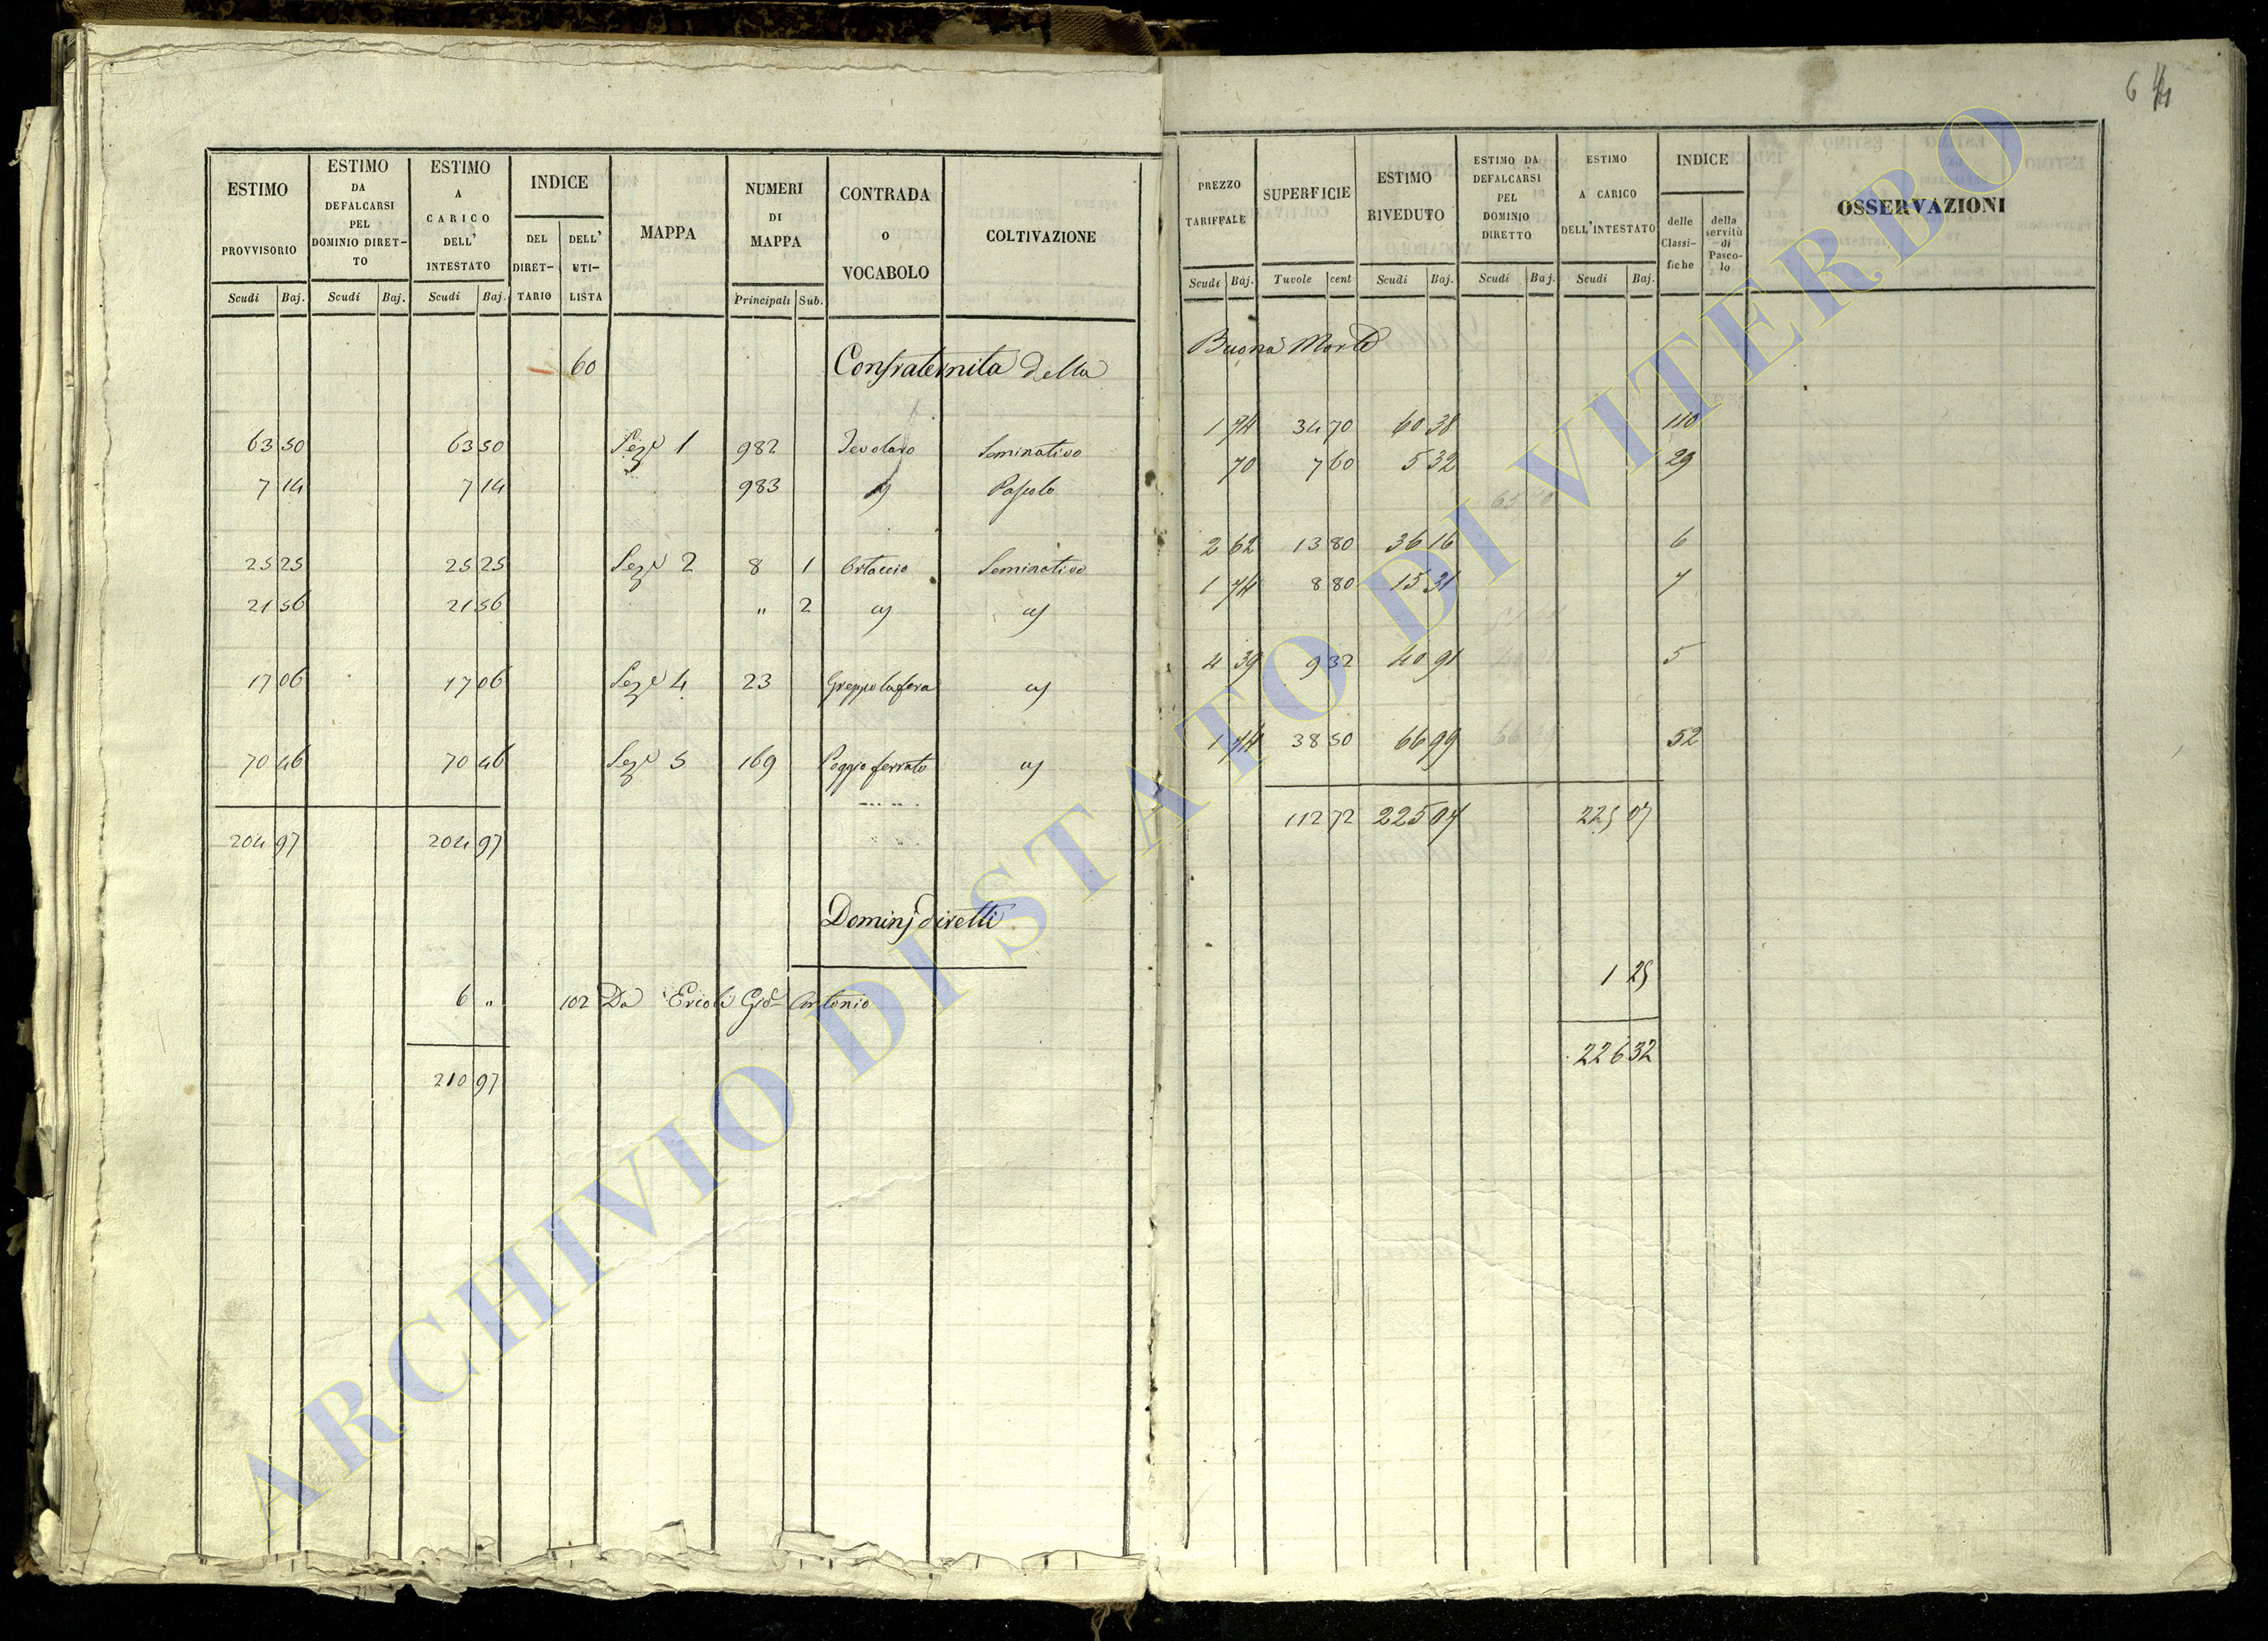 64
ESTIMO PROVVISORIO | ESTIMO DA DEFALCARSI PEL DOMINIO DIRET-TO | ESTIMO A CARICO DELL' INTESTATO | INDICE | MAPPA | NUMERI DI MAPPA | CONTRADA o VOCABOLO | COLTIVAZIONE
DEL DIRET-TARIO | DELL' UTI-LISTA
Scudi | Baj. | Scudi | Baj. | Scudi | Baj. | Principali | Sub.
60 Confraternita della
63 50 | 63 50 | Sez.e 1 | 982 | | Seminativo
7 14 | 7 14 | 983 | | Pascolo
25 25 | 25 25 | Sez.e 2 | 8 | 1 | Ortaccio | Seminativo
21 56 | 21 56 | " | 2
17 06 | 17 06 | Sez.e 4 | 23
70 46 | 70 46 | Sez.e 5 | 169 | Poggio ferrato
204 97 | 204 97
Dominj diretti
6 " | 102 Da Ercoli Gio. Antonio
210 97
PREZZO TARIFFALE | SUPERFICIE | ESTIMO RIVEDUTO | ESTIMO DA DEFALCARSI PEL DOMINIO DIRETTO | ESTIMO A CARICO DELL'INTESTATO | INDICE | OSSERVAZIONI
delle Classi-fiche | della servitù di Pasco-lo
Scudi | Baj. | Tavole | cent | Scudi | Baj. | Scudi | Baj. | Scudi | Baj.
Buona Morte
1 74 | 34 70 | 60 38 | 110
70 | 7 60 | 5 32 | 29
2 62 | 13 80 | 36 16 | 6
1 74 | 8 80 | 15 31 | 7
4 39 | 9 32 | 40 91 | 5
1 74 | 38 50 | 66 99 | 52
112 72 | 225 07 | 225 07
1 25
226 32
ARCHIVIO DI STATO DI VITERBO